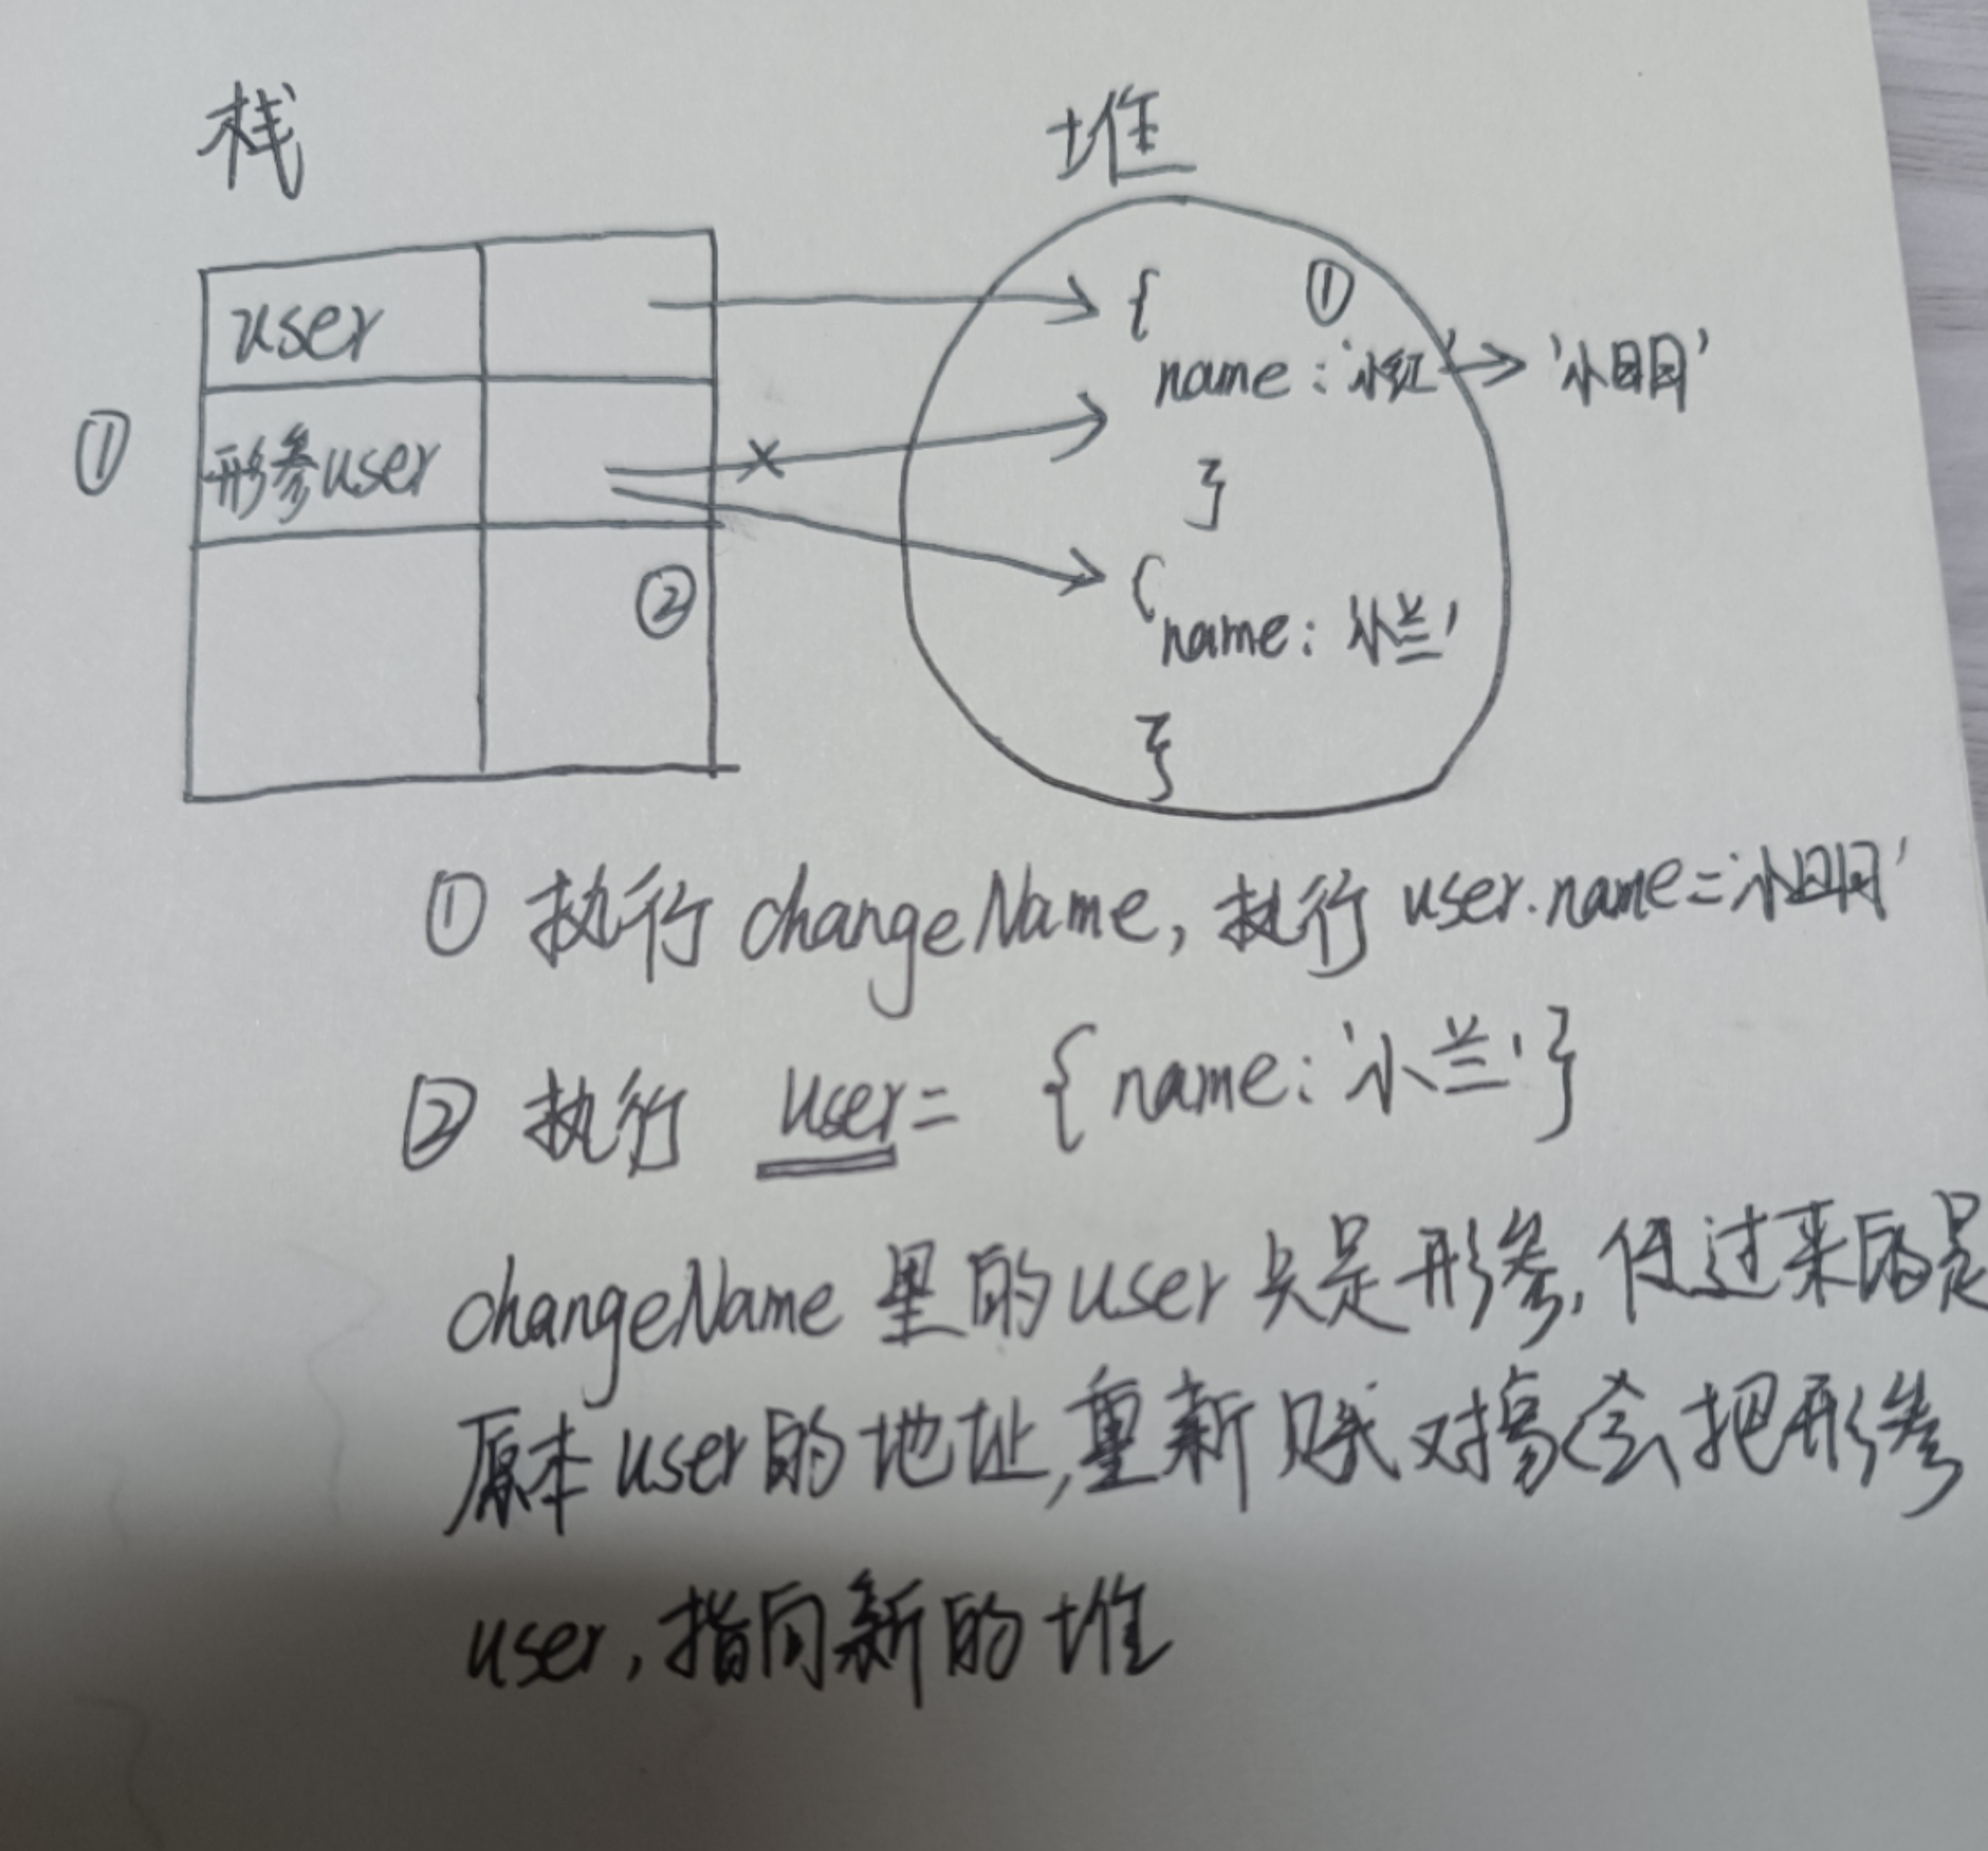 栈
堆
user
{ ①
name：'小红' → '小明'
① 形参user
×
}
②
{
name：小兰'
}
① 执行 changeName, 执行 user.name='小明'
② 执行 user= {name:'小兰'}
changeName 里的user只是形参,传过来的是
原本user的地址,重新赋对象会把形参
user,指向新的堆